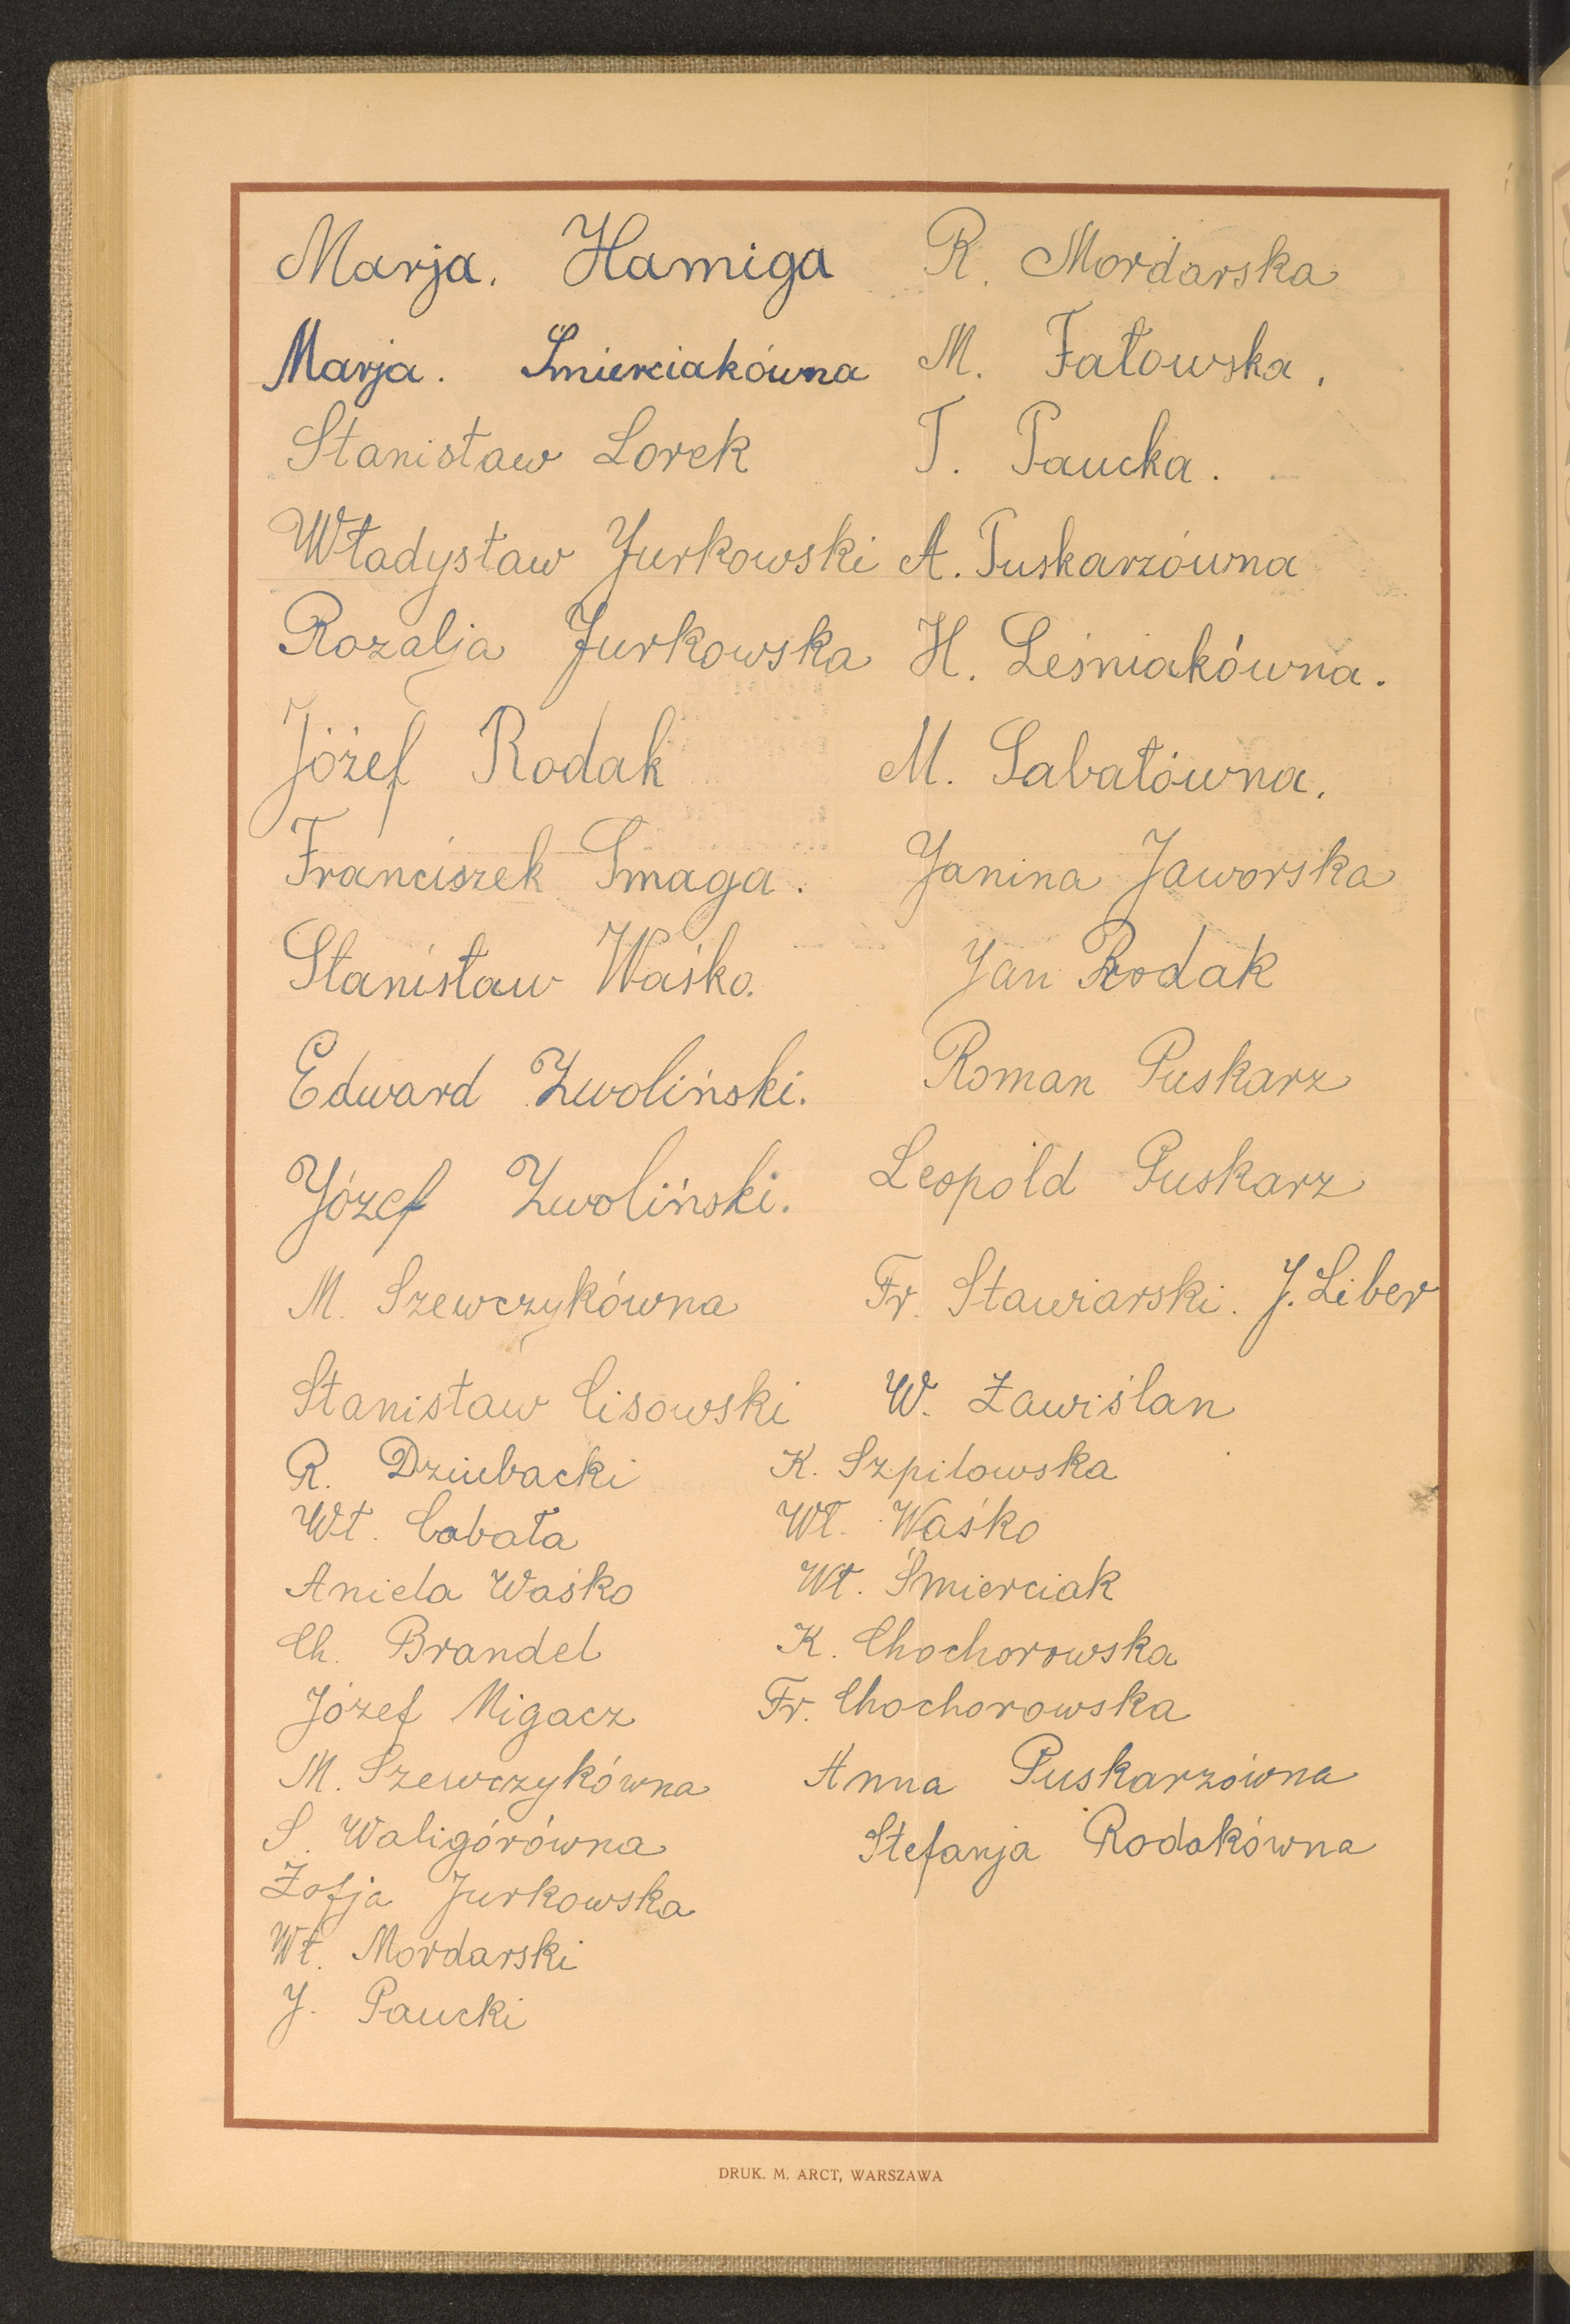 Marja. Hamiga
Marja. Śmierciakówna
Stanisław Lorek
Władysław Jurkowski
Rozalja Jurkowska
Józef Rodak
Franciszek Smaga.
Stanisław Waśko.
Edward Zwoliński.
Józef Zwoliński.
M. Szewczykówna
Stanisław Cisowski
R. Dziubacki
Wł. Cabała
Aniela Waśko
Ch. Brandel
Józef Migacz
M. Szewczykówna
S. Waligórówna
Zofja Jurkowska
Wł. Mordarski
J. Paucki
R. Mordarska
M. Fałowska.
T. Paucka.
A. Puskarzówna
H. Leśniakówna.
M. Sabatówna.
Janina Jaworska
Jan Rodak
Roman Puskarz
Leopold Puskarz
Fr. Stawiarski. J. Liber
W. Zawiślan
K. Szpilowska
Wł. Waśko
Wł. Śmierciak
K. Chochorowska
Fr. Chochorowska
Anna Puskarzówna
Stefanja Rodakówna
DRUK. M. ARCT, WARSZAWA